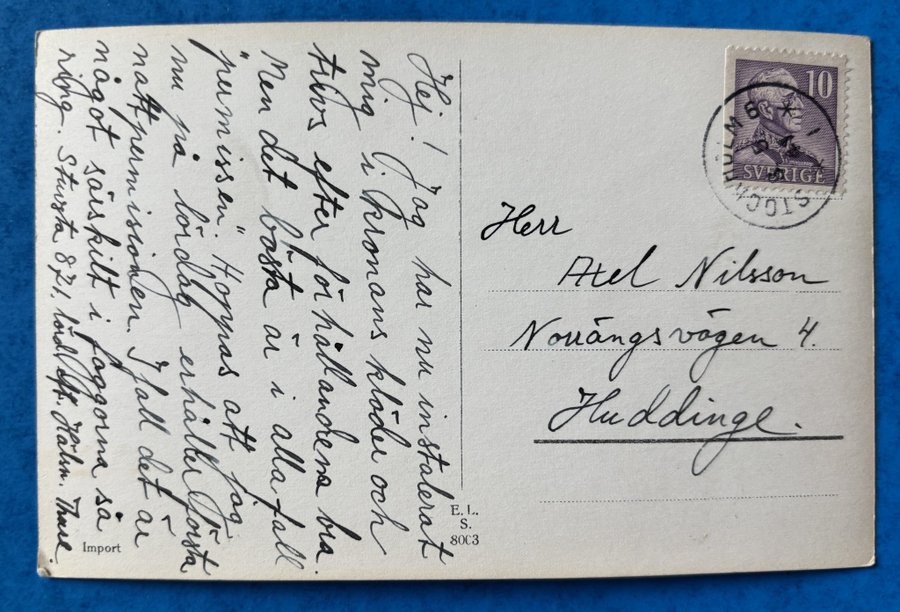 Hej! Jag har nu instalerat
mig i kronans kläder och
trivs efter förhållandena bra.
Men det bästa är i alla fall
"permissen." Hoppas att jag
nu på lördag erhåller första
nattpermissionen. Ifall det är
något särskilt i faggorna så
ring. Stuvsta 871. lörd. eft. Hälsn.
10
SVERIGE
STOCKHOLM 6
Herr
Axel Nilsson
Norrängsvägen 4.
Huddinge.
E. L.
S.
8003
Import